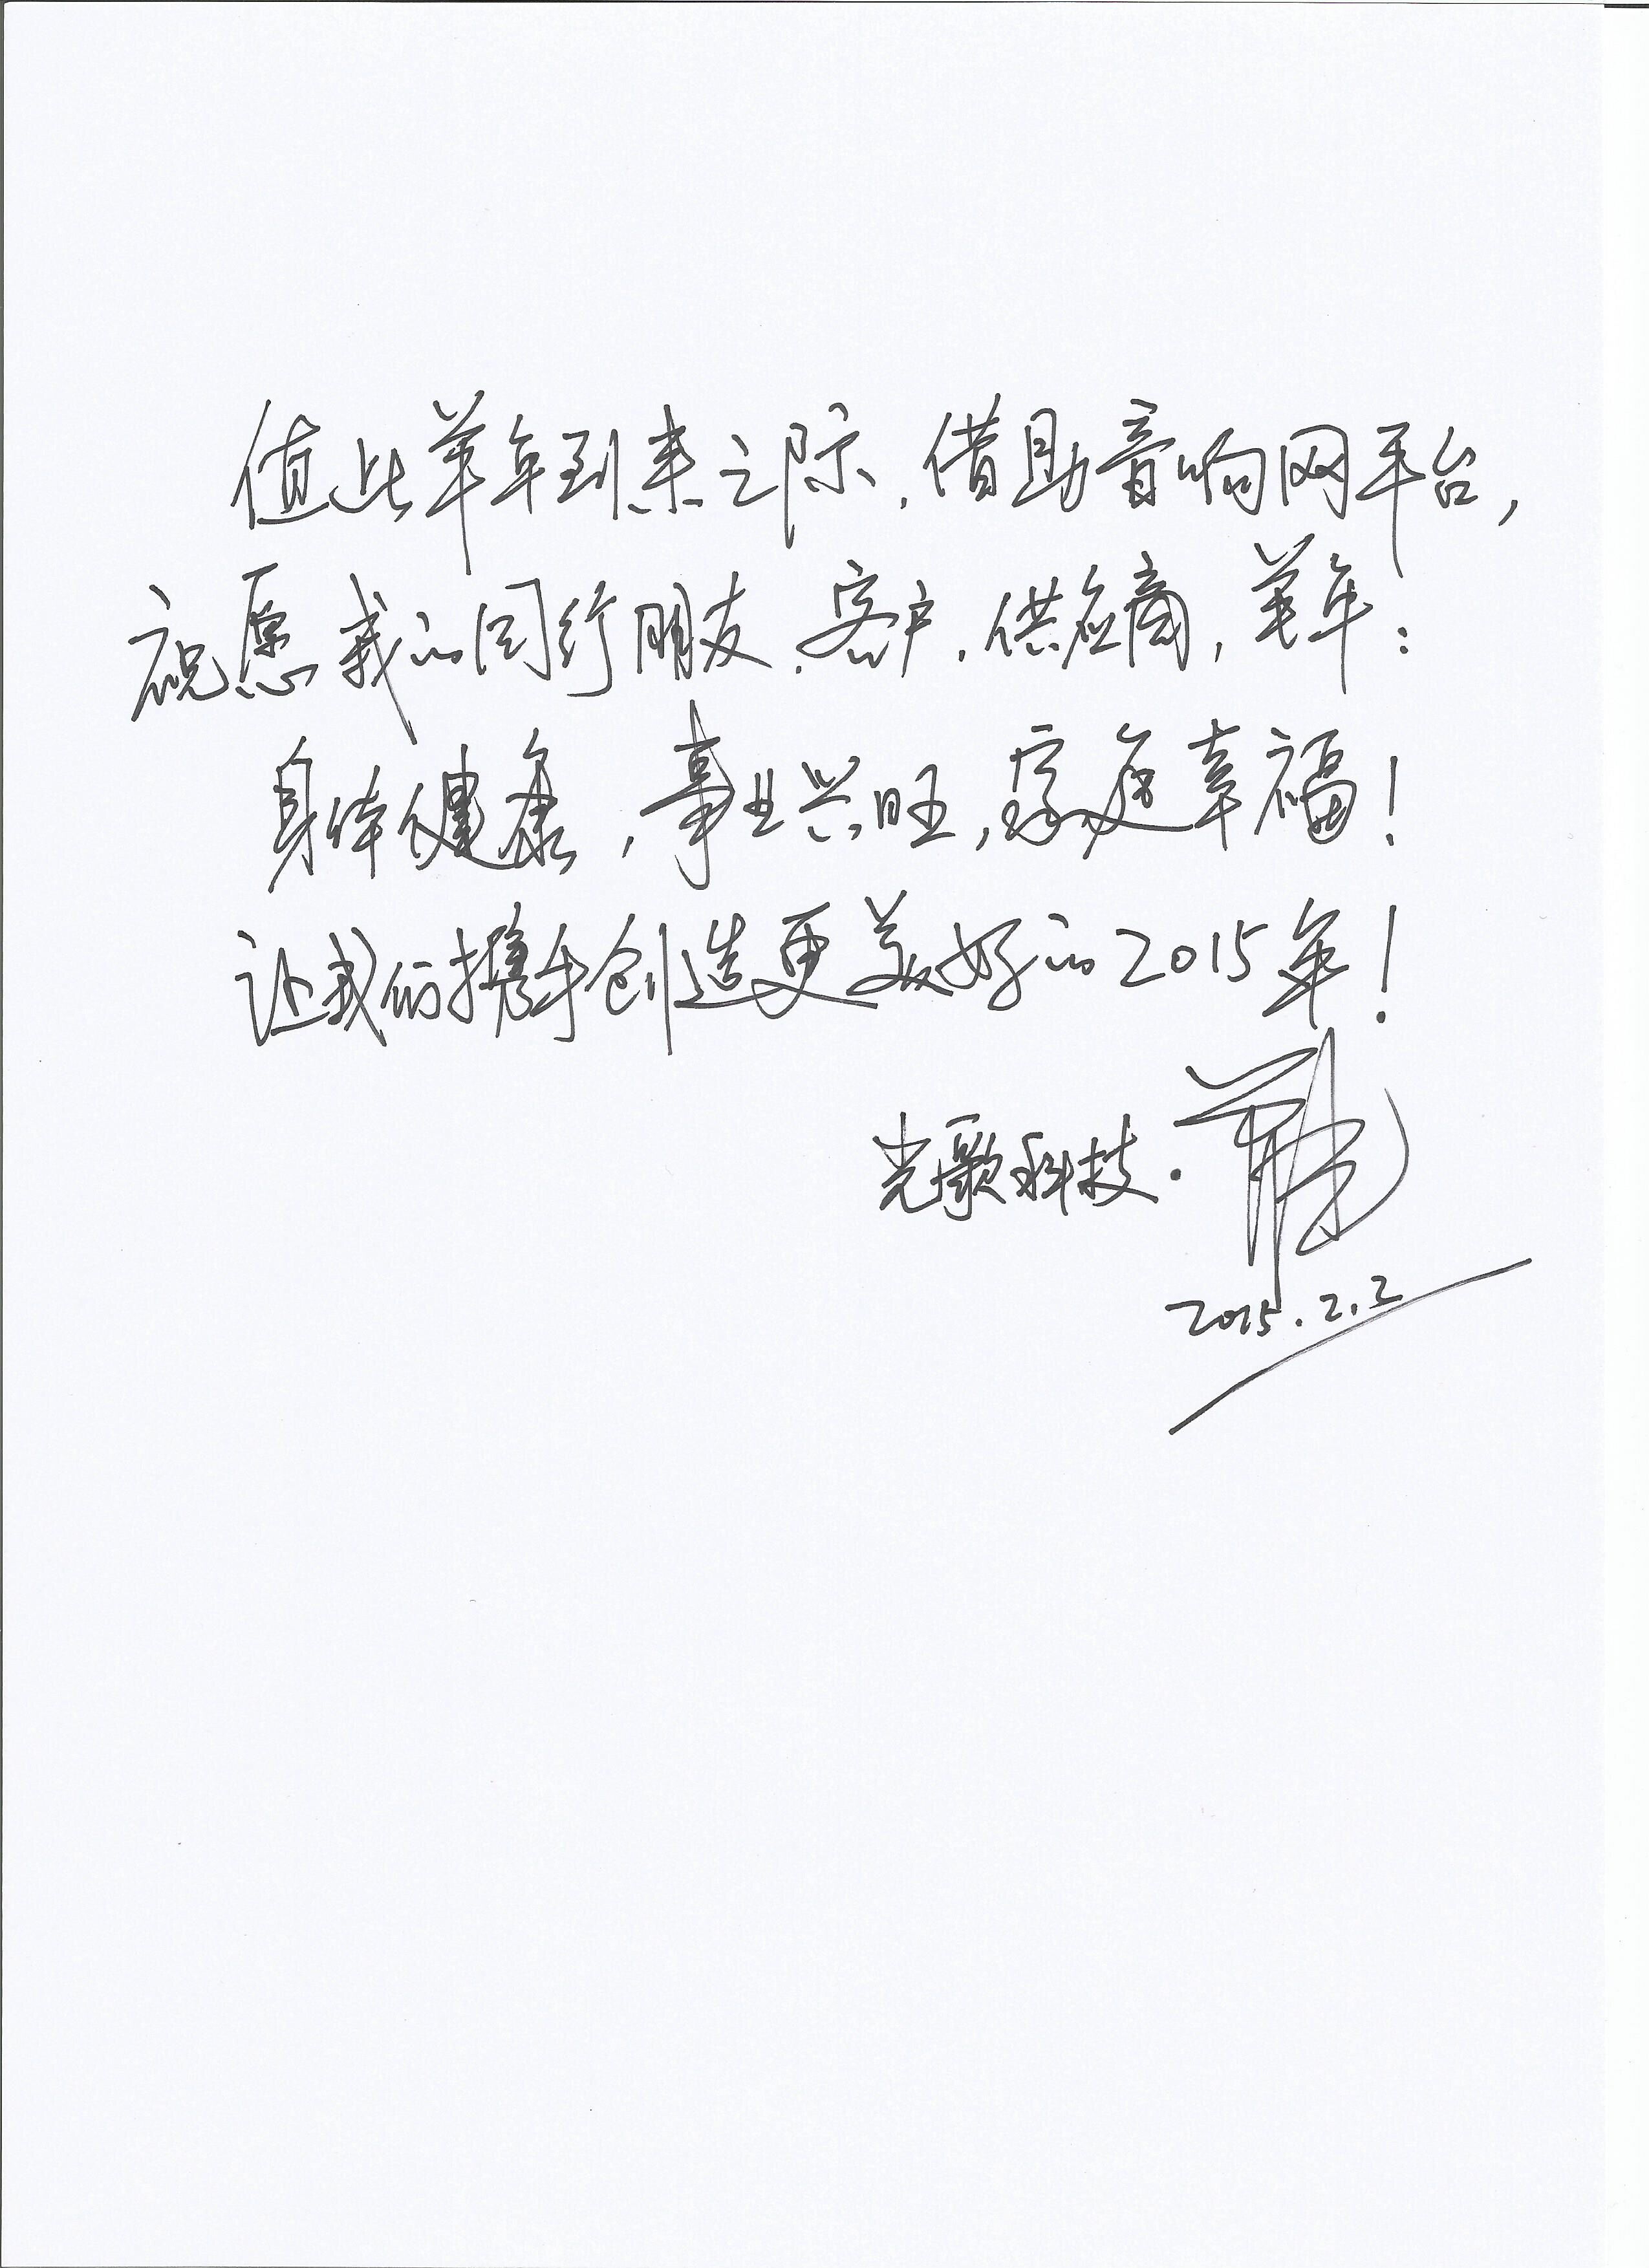 值此羊年到来之际，借助音响网平台，
祝愿我的同行朋友、客户、供应商，羊年：
身体健康，事业兴旺，家庭幸福！
让我们携手创造更美好的2015年！
光歌科技·
2015.2.2